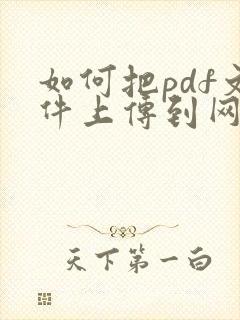 如何把pdf文
件上传到网
天下第一白